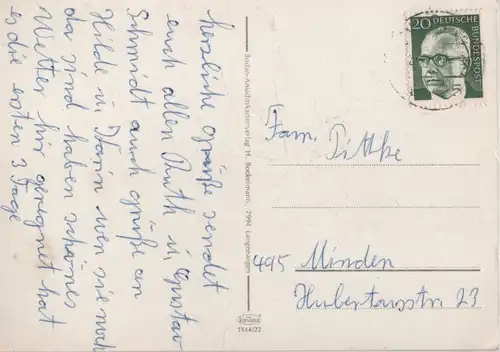 herzliche grüße sendet
euch allen Ruth u, Gustav
Schmidt auch grüße an
Hilde u, Dorin wen sie noch
da sind haben schönes
Wetter hir geregnet hat
es die ersten 3 Tage
20 DEUTSCHE BUNDESPOST
Fam. Tittke
495 Minden
Hubertusstr 23
Bodan-Ansichtskartenverlag H. Bockelmann, 7994 Langenargen
1144/22